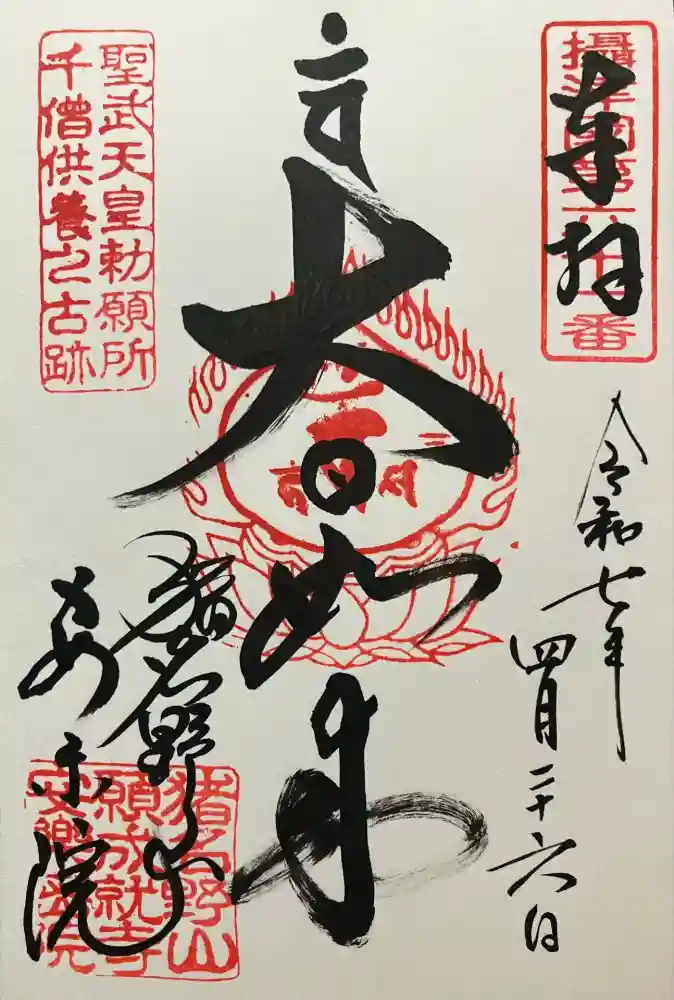 奉拝
令和七年
四月二十六日
大日如来
猪名野山
安楽院
聖武天皇勅願所
千僧供養之古跡
猪名野山
願成就寺
安樂院